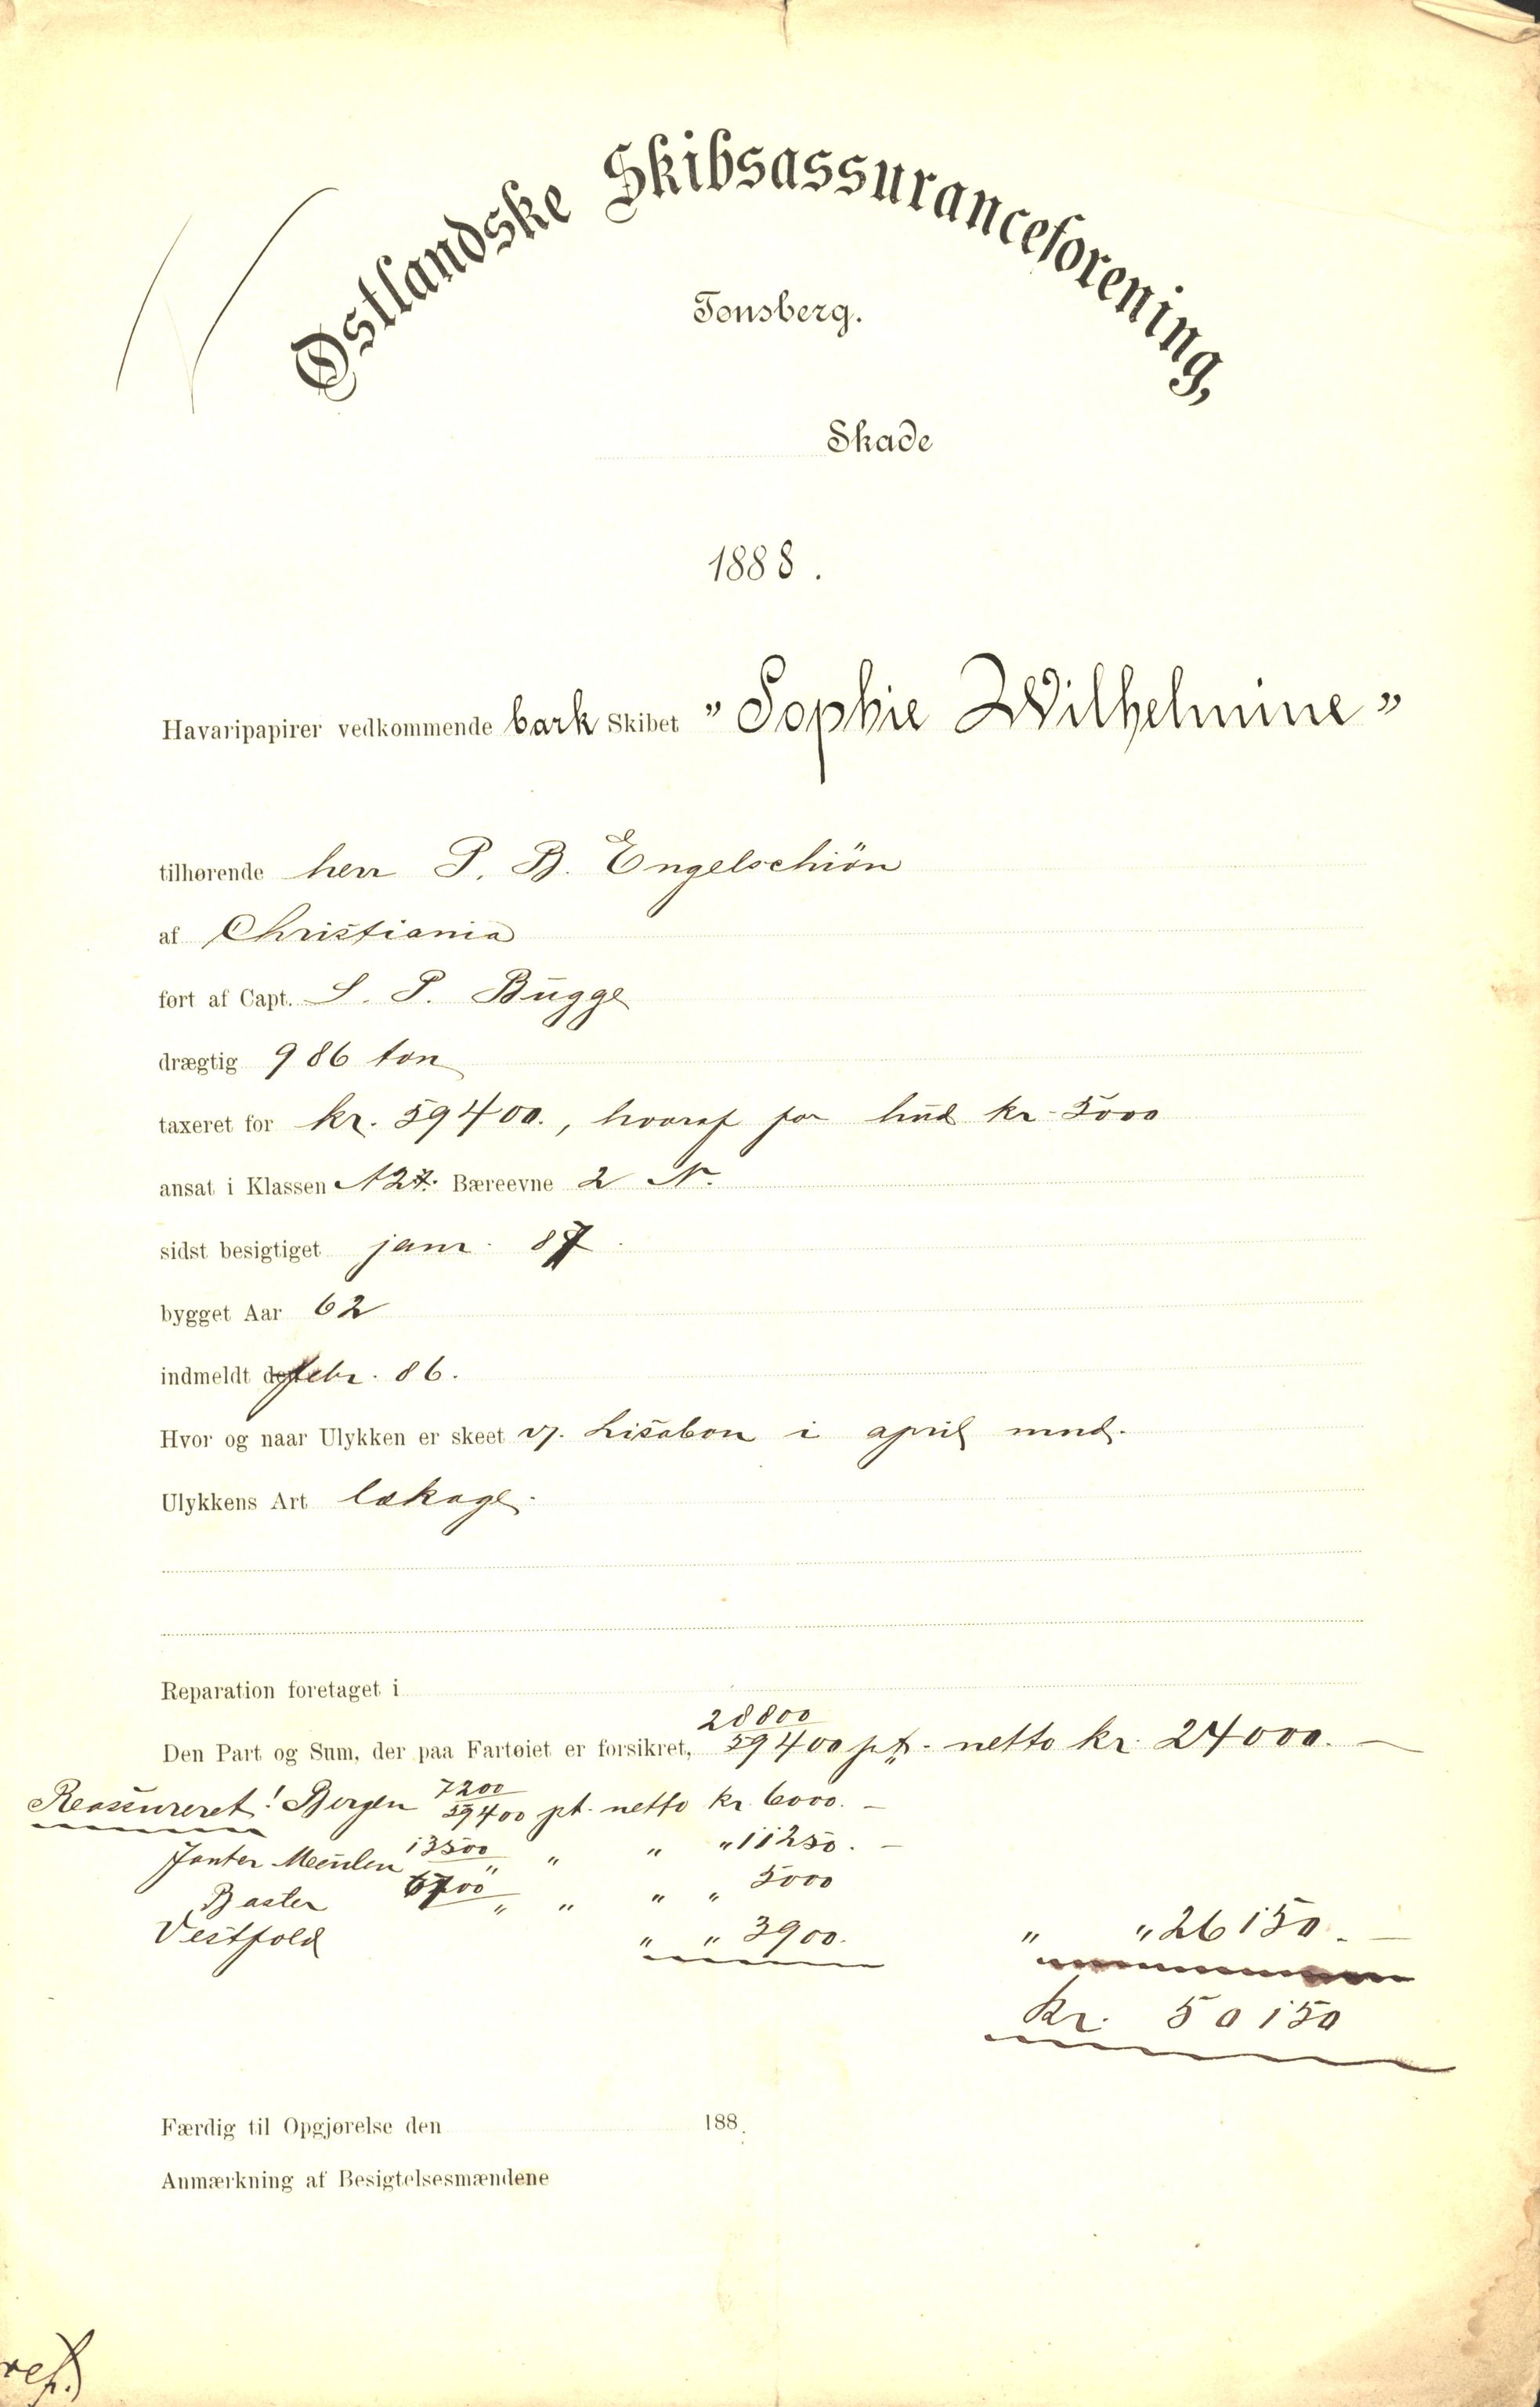 Østlandske Skibsassuranceforening,
Tønsberg.
Skade
1888.
Havaripapirer vedkommende bark Skibet "Sophie Wilhelmine"
tilhørende herr P. B. Engelschiön
af Christiania
ført af Capt. S. P. Bugge
drægtig 986 ton
taxeret for kr. 59400., hvoraf for hud kr 5000
ansat i Klassen Bæreevne 2 N.
sidst besigtiget janr. 87.
bygget Aar 62
indmeldt febr. 86.
Hvor og naar Ulykken er skeet v. Lissabon i april mnd.
Ulykkens Art lækage.
Reparation foretaget i
28800
Den Part og Sum, der paa Fartøiet er forsikret, 59400 pt. netto kr. 24000.—
7200
Reassureret! Bergen 59400 pt. netto kr. 6000.—
13500
" " " " 11250.—
" " " " 5000
Vestfold " " 3900. " " 26150.—
kr. 50150
Færdig til Opgjørelse den 188.
Anmærkning af Besigtelsesmændene